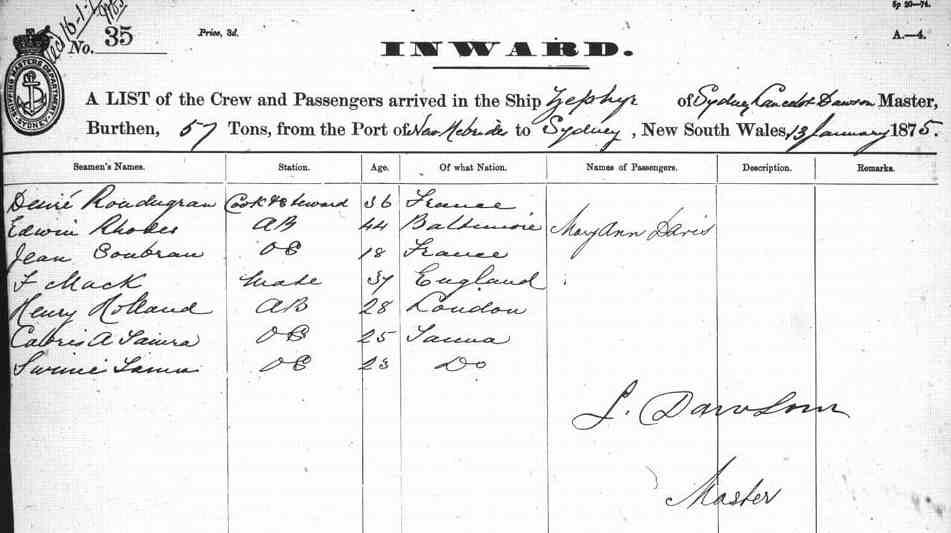 Sp 20—74.
16-1-
No. 35
Price, 3d.
A.—4.
INWARD.
SHIPPING MASTERS DEPARTMENT SYDNEY
A LIST of the Crew and Passengers arrived in the Ship Zephyr of Sydney Lancelot Dawson Master,
Burthen, 57 Tons, from the Port of New Hebrides to Sydney, New South Wales, 13 January 1875.
Seamen's Names. Station. Age. Of what Nation. Names of Passengers. Description. Remarks.
Desiré Cook & Steward 36 France
Edwin Rhodes AB 44 Baltimore Mary Ann Davis
Jean OS 18 France
F Mack Mate 37 England
Henry Holland AB 28 London
A OS 25 Tanna
OS 23 Do
L. Dawson
Master